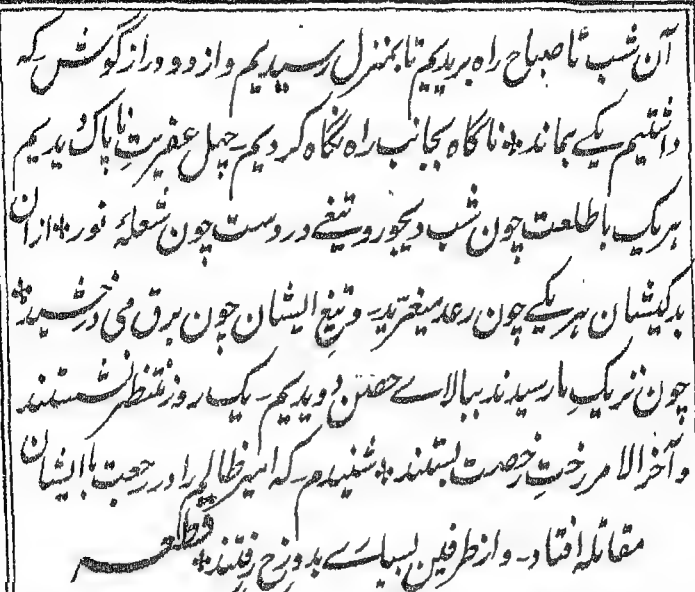 آن شب تا صباح راه بریدیم تا بمنزل رسیدیم و از دو دراز گوش که
داشتیم یکے بماند ❊ ناگاه بجانب راه نگاه کردیم چهل عفریتِ ناپاک دیدیم
هر یک با طلعت چون شب دیجور و تیغے در دست چون شعلهٔ نور ❊ ازان
بدکیشان هر یکے چون رعد میغرّید۔ و تیغ ایشان چون برق می درخشید ❊
چون نزدیکِ ما رسیدند ببالاے حصن دویدیم۔ یک روز منتظر نشستند
و آخر الامر رختِ رخصت بستند ❊ شنیدم که امیر ظالم را در رجعت با ایشان
مقاتله افتاد۔ و از طرفین بسیارے بدوزخ رفتند ❊ قطعه